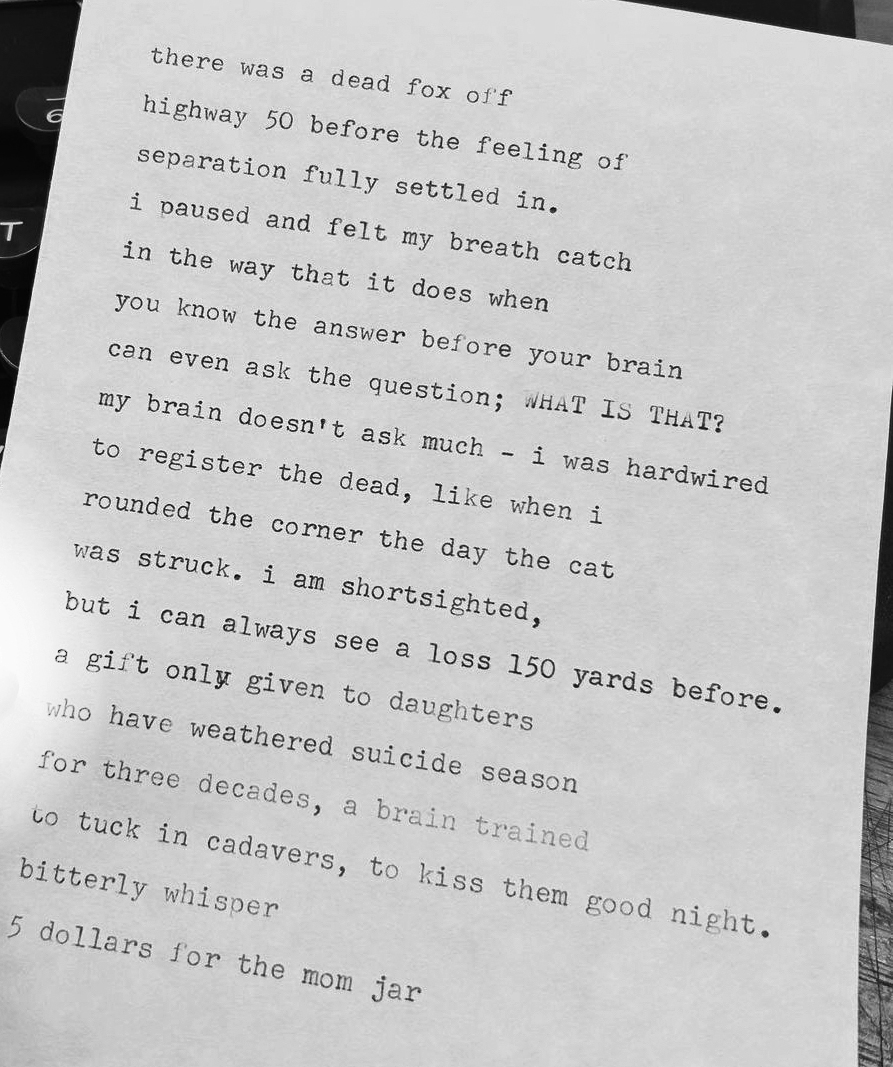 there was a dead fox off
highway 50 before the feeling of
separation fully settled in.
i paused and felt my breath catch
in the way that it does when
you know the answer before your brain
can even ask the question; WHAT IS THAT?
my brain doesn't ask much - i was hardwired
to register the dead, like when i
rounded the corner the day the cat
was struck. i am shortsighted,
but i can always see a loss 150 yards before.
a gift only given to daughters
who have weathered suicide season
for three decades, a brain trained
to tuck in cadavers, to kiss them good night.
bitterly whisper
5 dollars for the mom jar
6
T